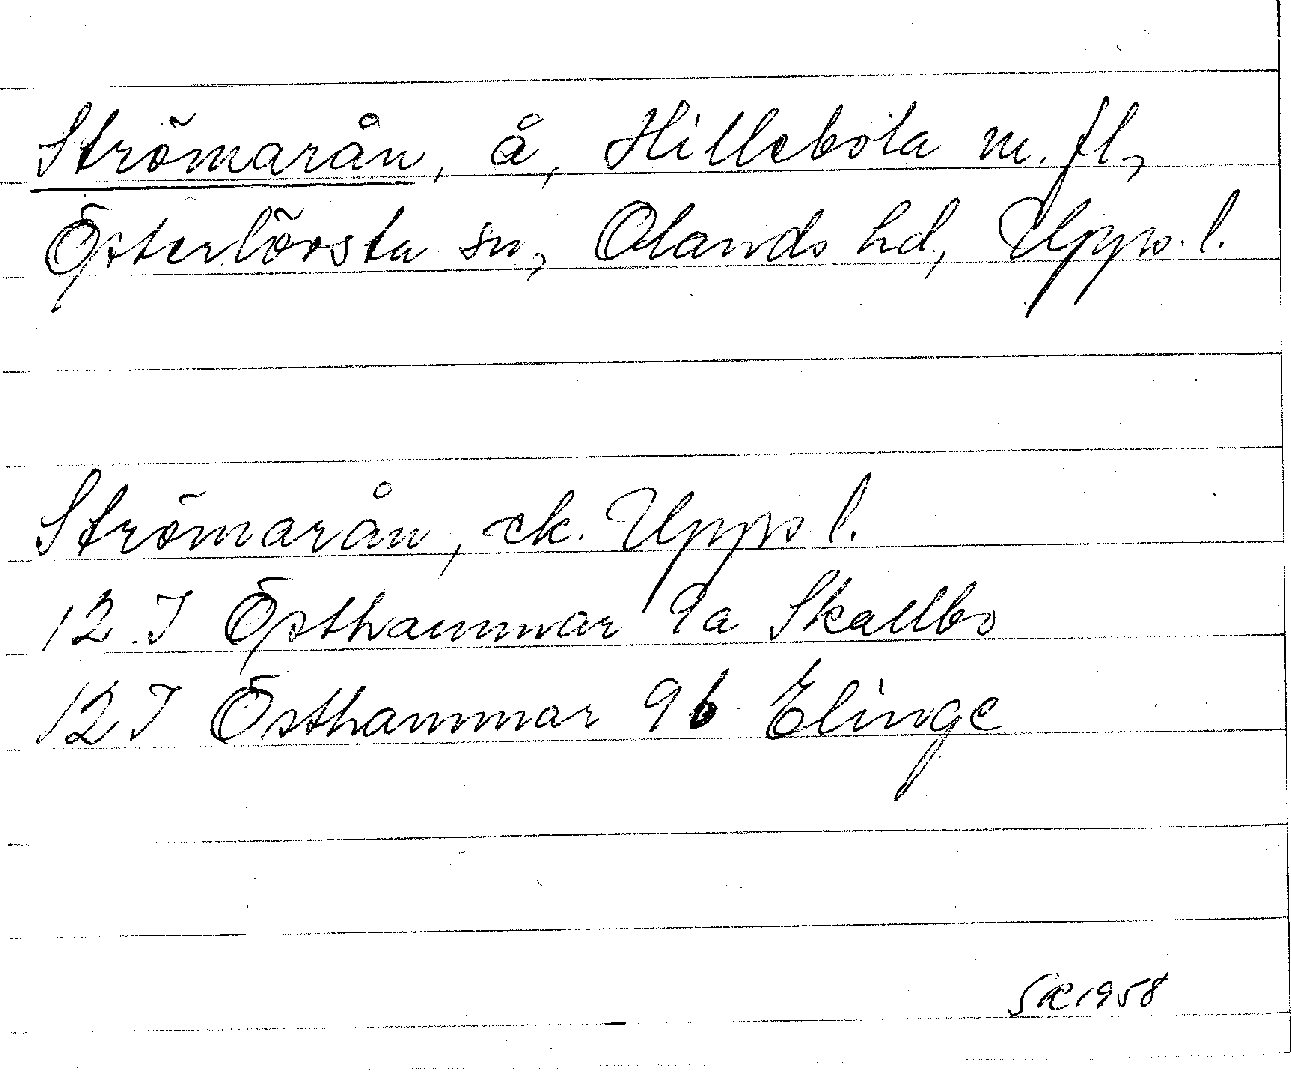 Strömarån, å, Hillebola m. fl,
Österlövsta sn, Olands hd, Upps. l.
Strömarån, ek. Upps l.
12 I Östhammar 9a Skallbo
12 I Östhammar 9b Elinge
1958